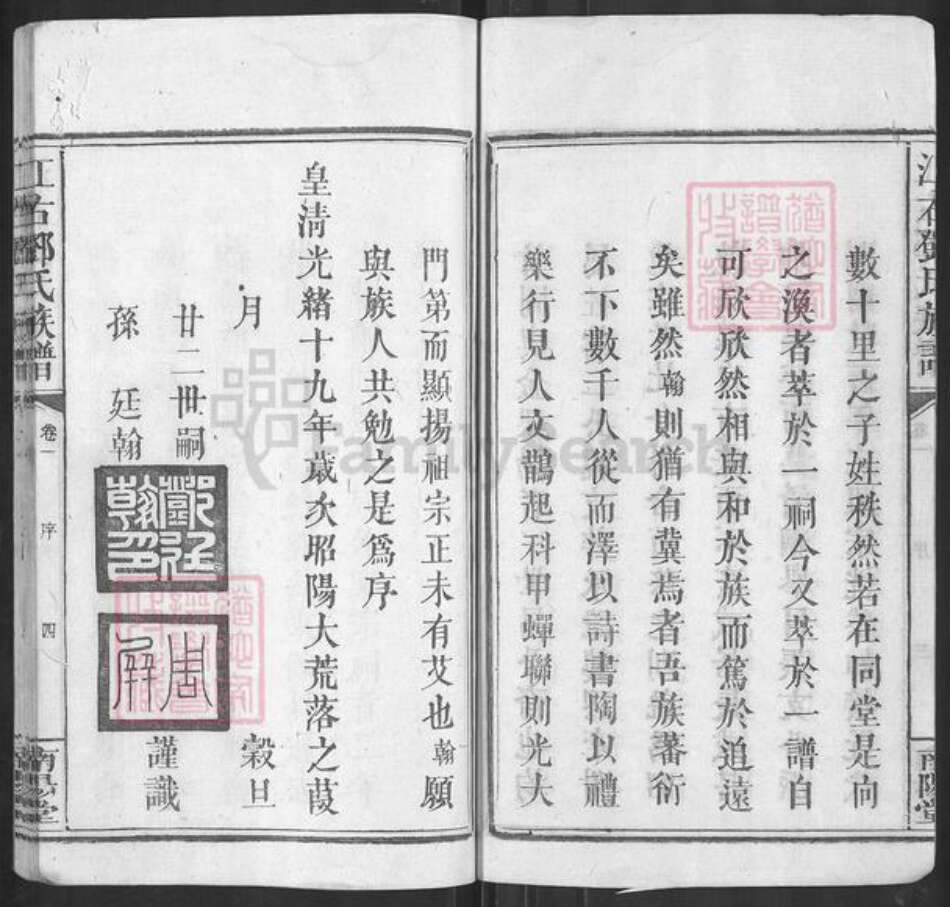 數十里之子姓秩然若在同堂是向
之渙者萃於一祠今又萃於一譜自
可欣欣然相與和於族而篤於追遠
矣雖然翰則猶有冀焉者吾族蕃衍
不下數千人從而澤以詩書陶以禮
樂行見人文鵲起科甲蟬聯則光大
門第而顯揚祖宗正未有艾也翰願
與族人共勉之是爲序
皇清光緒十九年歲次昭陽大荒落之葭
月 穀旦
廿二世嗣
孫 廷翰
鄧廷翰印
周屏
謹識
江右鄧氏族譜
卷一 序 四
南陽堂
江右鄧氏族譜
南陽堂
FamilySearch